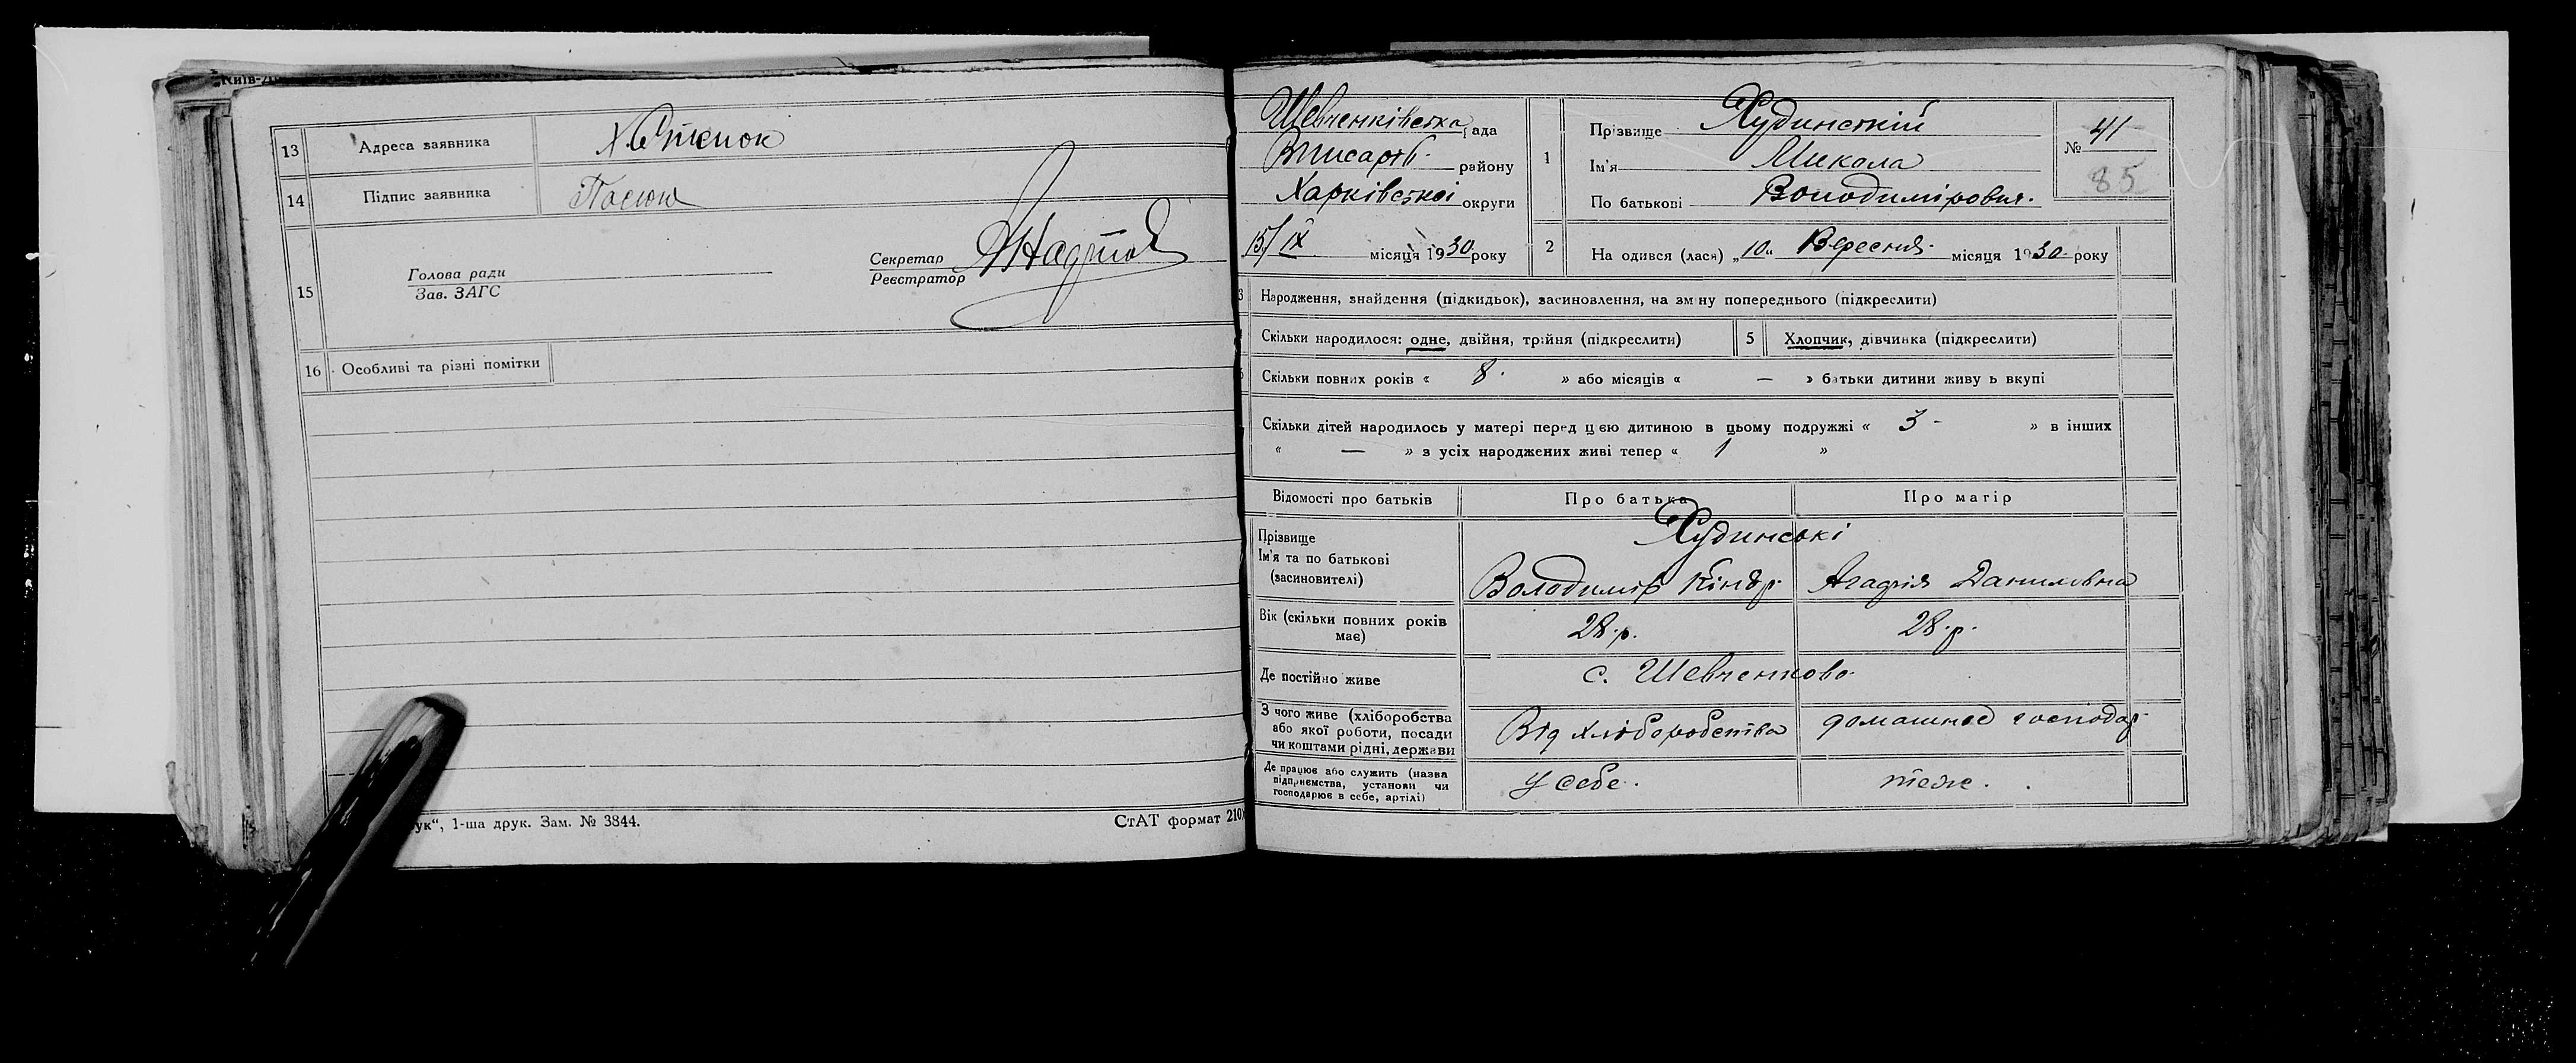 Київ-
13 Адреса заявника х. Степок
14 Підпис заявника
15 Голова ради
Зав. ЗАГС
Секретар
Реєстратор
16 Особливі та різні помітки
ук“, 1-ша друк. Зам. № 3844.
СтАТ формат 210
Шевченківська рада
району
Харківської округи
15/IX місяця 1930 року
1 Прізвище Худинській
Ім'я Микола
По батькові Володимірович.
№ 41
85
2 На одився (лася) „10“ Вересня місяця 1930 року
3 Народження, знайдення (підкидьок), засиновлення, на зм ну попереднього (підкреслити)
Скільки народилося: одне, двійня, трійня (підкреслити) 5 Хлопчик, дівчинка (підкреслити)
Скільки повних років « 8 » або місяців « — » батьки дитини живу ь вкупі
Скільки дітей народилось у матері перед цею дитиною в цьому подружжі « 3 - » в інших
« — » з усіх народжених живі тепер « 1 »
Відомості про батьків Про батька Про матір
Прізвище Худинські
Ім'я та по батькові
(засиновителі) Володимір Кіндр. Агафія Данилівна
Вік (скільки повних років
має) 28.р. 28.р.
Де постійно живе с. Шевченково
З чого живе (хліборобства
або якої роботи, посади
чи коштами рідні, держави Від хліборобства домашнє господар.
Де працює або служить (назва
підприємства, установи чи
господарює в себе, артілі) У себе. теж.